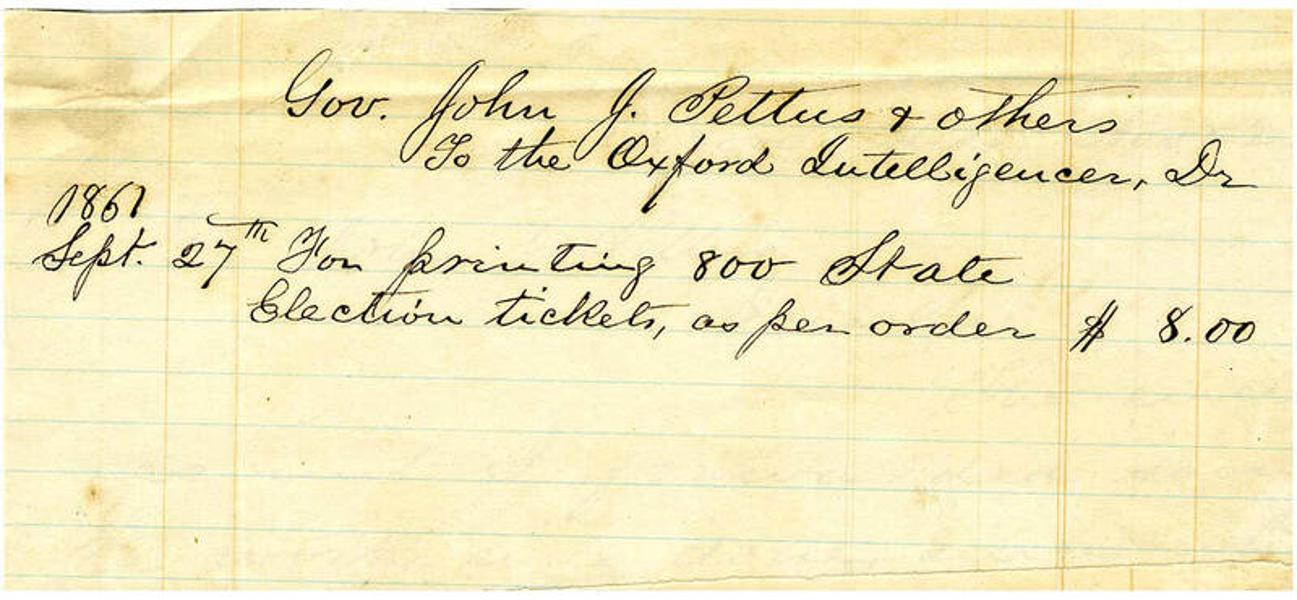 Gov. John J. Pettus & others
To the Oxford Intelligencer, Dr
1861
Sept. 27th For printing 800 State
Election tickets, as per order $ 8.00